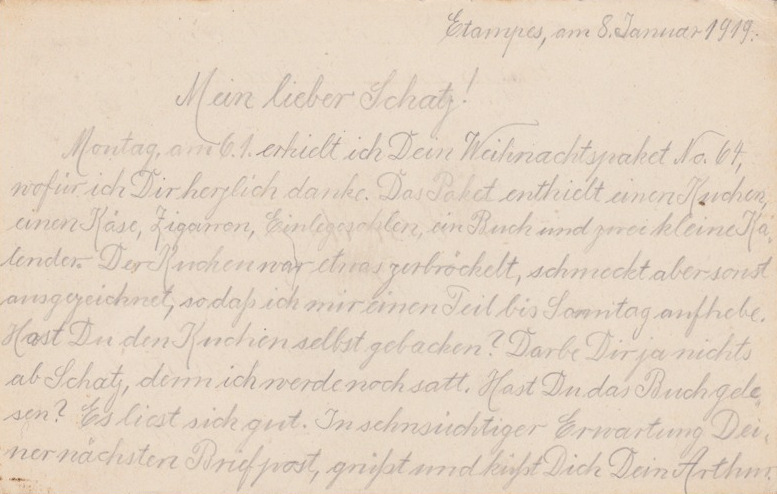 Etampes, am 8. Januar 1919.
Mein lieber Schatz!
Montag, am 6.1. erhielt ich Dein Weihnachtspaket No. 64,
wofür ich Dir herzlich danke. Das Paket enthielt einen Kuchen,
einen Käse, Zigarren, Einlegesohlen, ein Buch und zwei kleine Ka-
lender. Der Kuchen war etwas zerbröckelt, schmeckt aber sonst
ausgezeichnet, so daß ich mir einen Teil bis Sonntag aufhebe.
Hast Du den Kuchen selbst gebacken? Darbe Dir ja nichts
ab Schatz, denn ich werde noch satt. Hast Du das Buch gele-
sen? Es liest sich gut. In sehnsüchtiger Erwartung Dei-
ner nächsten Briefpost, grüßt und küßt Dich Dein Arthur.